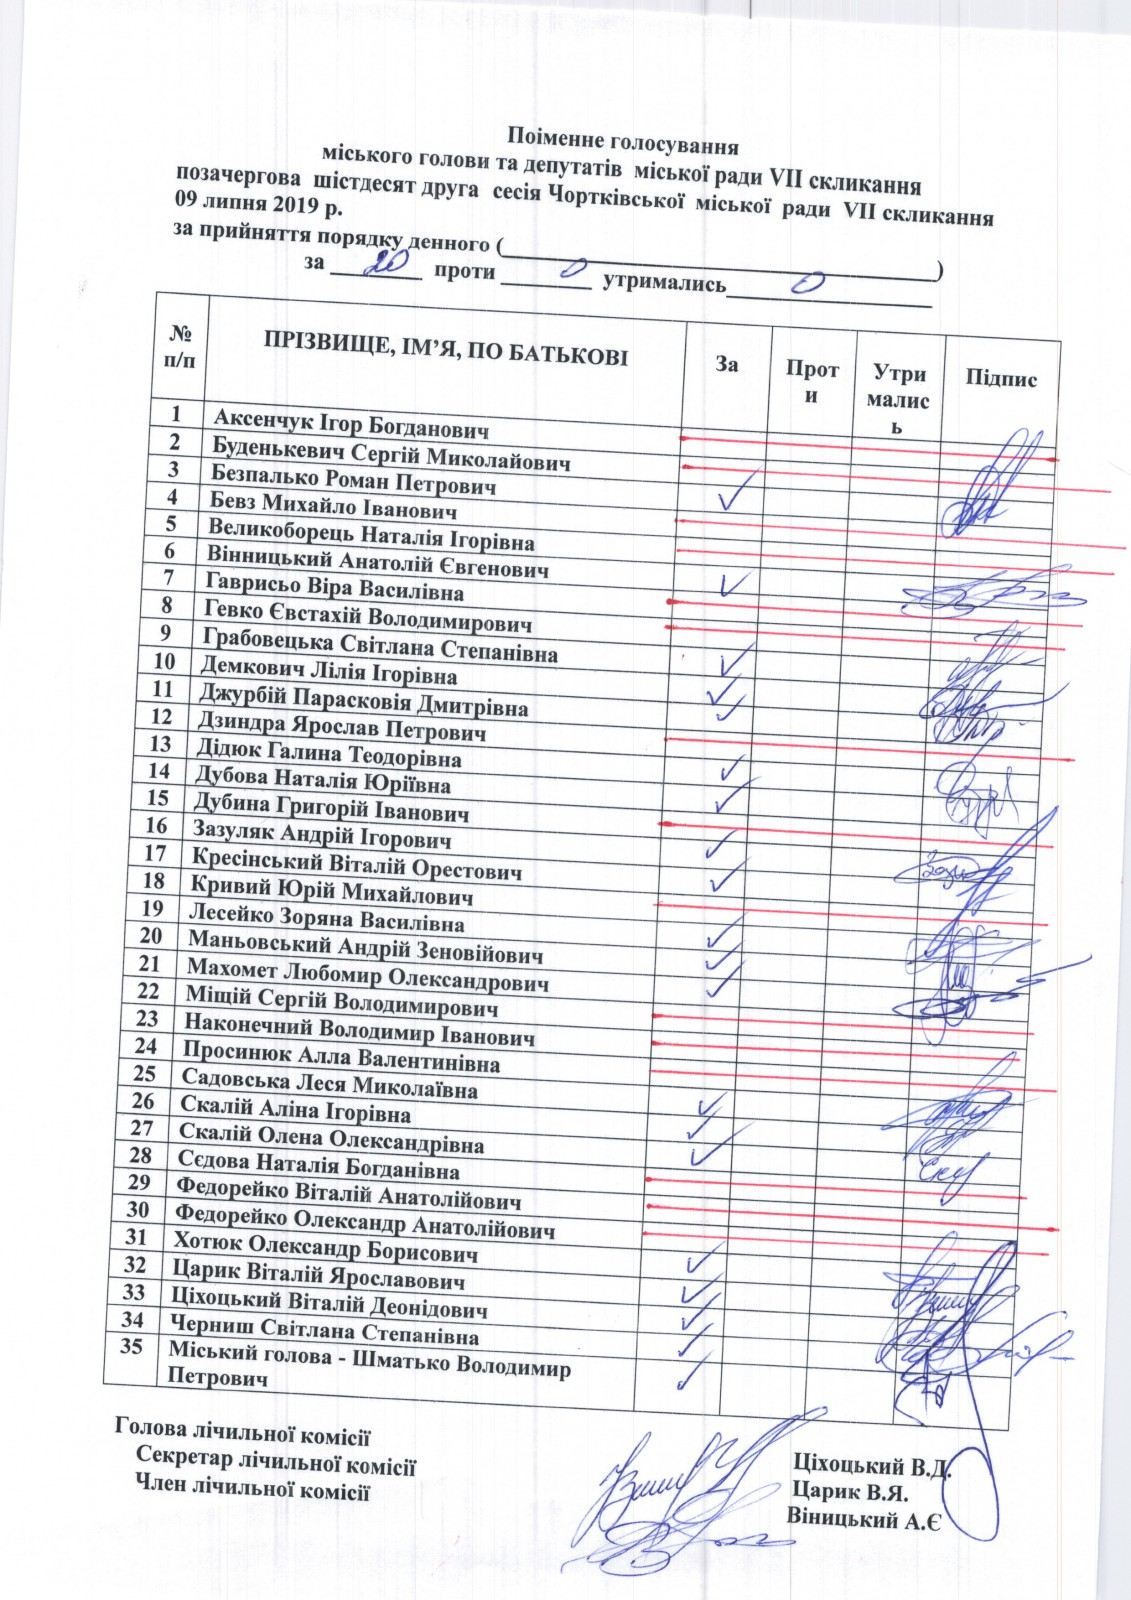 Поіменне голосування
міського голови та депутатів міської ради VII скликання
позачергова шістдесят друга сесія Чортківської міської ради VII скликання
09 липня 2019 р.
за прийняття порядку денного (____________________)
за 20 проти 0 утримались 0
№ п/п ПРІЗВИЩЕ, ІМ’Я, ПО БАТЬКОВІ За Проти Утримались Підпис
1 Аксенчук Ігор Богданович
2 Буденькевич Сергій Миколайович
3 Безпалько Роман Петрович ✓
4 Бевз Михайло Іванович
5 Великоборець Наталія Ігорівна
6 Вінницький Анатолій Євгенович ✓
7 Гаврисьо Віра Василівна
8 Гевко Євстахій Володимирович
9 Грабовецька Світлана Степанівна ✓
10 Демкович Лілія Ігорівна ✓
11 Джурбій Парасковія Дмитрівна ✓
12 Дзиндра Ярослав Петрович
13 Дідюк Галина Теодорівна ✓
14 Дубова Наталія Юріївна ✓
15 Дубина Григорій Іванович
16 Зазуляк Андрій Ігорович ✓
17 Кресінський Віталій Орестович ✓
18 Кривий Юрій Михайлович
19 Лесейко Зоряна Василівна ✓
20 Маньовський Андрій Зеновійович ✓
21 Махомет Любомир Олександрович ✓
22 Міщій Сергій Володимирович
23 Наконечний Володимир Іванович
24 Просинюк Алла Валентинівна
25 Садовська Леся Миколаївна ✓
26 Скалій Аліна Ігорівна ✓
27 Скалій Олена Олександрівна ✓
28 Сєдова Наталія Богданівна
29 Федорейко Віталій Анатолійович
30 Федорейко Олександр Анатолійович
31 Хотюк Олександр Борисович ✓
32 Царик Віталій Ярославович ✓
33 Ціхоцький Віталій Деонідович ✓
34 Черниш Світлана Степанівна ✓
35 Міський голова - Шматько Володимир
Петрович ✓
Голова лічильної комісії Ціхоцький В.Д.
Секретар лічильної комісії Царик В.Я.
Член лічильної комісії Віницький А.Є